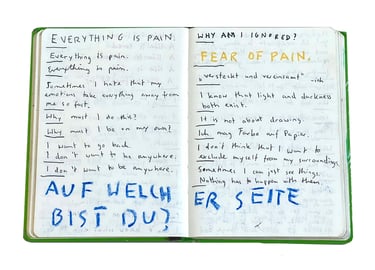 EVERYTHING IS PAIN.
Everything is pain.
Everything is pain.
Sometimes I hate that my
emotions take everything away from
me so fast.
Why must I do this?
Why must I be on my own?
I want to go back.
I don't want to be anywhere.
I don't want to be anywhere.
AUF WELCH
BIST DU?
WHY AM I IGNORED?
FEAR OF PAIN.
"versteckt und vereinsamt" -ich
I know that light and darkness
both exist.
It is not about drawing.
Ich mag Farbe auf Papier.
I don't think that I want to
exclude myself from my surroundings.
Sometimes I can just see things.
Nothing has to happen with them.
ER SEITE